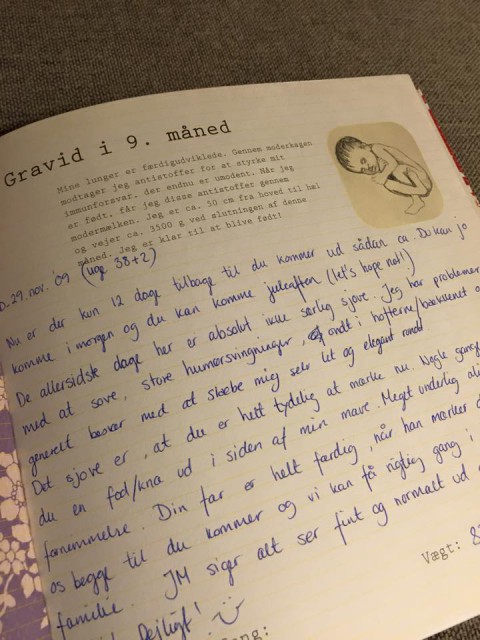 Gravid i 9. måned
Mine lunger er færdigudviklede. Gennem moderkagen
modtager jeg antistoffer for at styrke mit
immunforsvar, der endnu er umodent. Når jeg
er født, får jeg disse antistoffer gennem
modermælken. Jeg er ca. 50 cm fra hoved til hæl
og vejer ca. 3500 g ved slutningen af denne
måned. Jeg er klar til at blive født!
D. 29. nov. '09 (uge 38+2)
Nu er der kun 12 dage tilbage til du kommer ud sådan ca. Du kan jo
komme i morgen og du kan komme juleaften (let's hope not!)
De allersidste dage her er absolut ikke særlig sjove. Jeg har problemer
med at sove, store humørsvingninger, ondt i hofterne/bækkenet o
generelt besvær med at slæbe mig selv let og elegant rundt
Det sjove er, at du er helt tydelig at mærke nu. Nogle gange
du en fod/knæ ud i siden af min mave. Meget underlig
fornemmelse. Din far er helt færdig, når han mærker d
os begge til du kommer og vi kan få rigtig gang i
familie. JM siger alt ser fint og normalt ud
Dejligt!
Vægt: 8